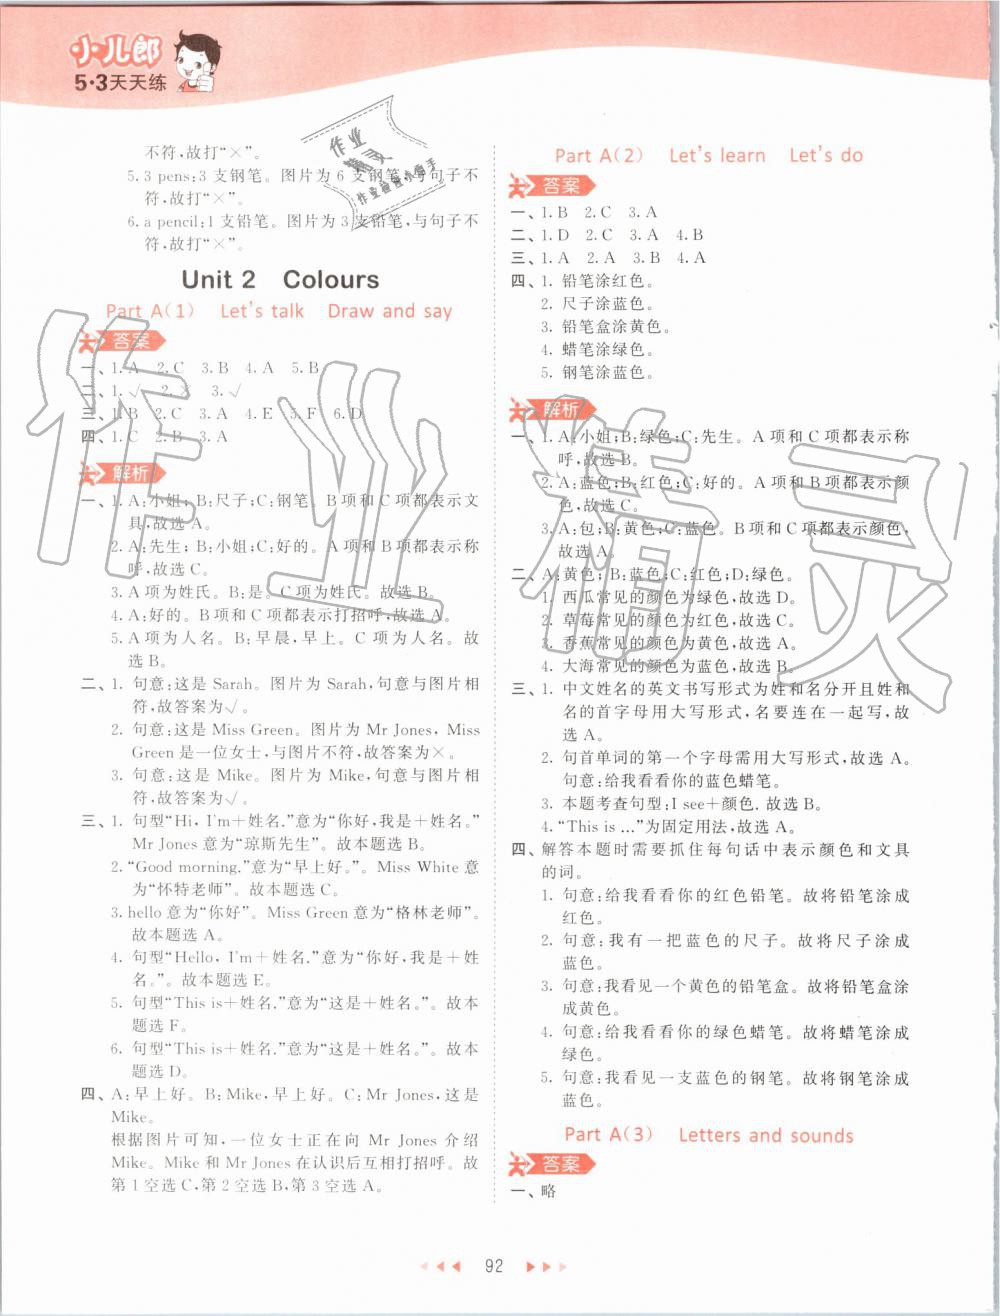 小儿郎
5·3天天练
不符,故打“×”。
5. 3 pens:3支钢笔。图片为6支钢笔,与句子不
符,故打“×”。
6. a pencil:1支铅笔。图片为3支铅笔,与句子不
符,故打“×”。
Unit 2 Colours
Part A(1) Let's talk Draw and say
答案
一、1. A 2. C 3. B 4. A 5. B
二、1. √ 2. × 3. √
三、1. B 2. C 3. A 4. E 5. F 6. D
四、1. C 2. B 3. A
解析
一、1. A:小姐;B:尺子;C:钢笔。B项和C项都表示文
具,故选A。
2. A:先生;B:小姐;C:好的。A项和B项都表示称
呼,故选C。
3. A项为姓氏。B:是。C项为姓氏。故选B。
4. A:好的。B项和C项都表示打招呼,故选A。
5. A项为人名。B:早晨,早上。C项为人名。故
选B。
二、1. 句意:这是Sarah。图片为Sarah,句意与图片相
符,故答案为√。
2. 句意:这是Miss Green。图片为Mr Jones,Miss
Green是一位女士,与图片不符,故答案为×。
3. 句意:这是Mike。图片为Mike,句意与图片相
符,故答案为√。
三、1. 句型“Hi, I'm+姓名.”意为“你好,我是+姓名。”
Mr Jones意为“琼斯先生”。故本题选B。
2. “Good morning.”意为“早上好。”。Miss White意
为“怀特老师”。故本题选C。
3. hello意为“你好”。Miss Green意为“格林老师”。
故本题选A。
4. 句型“Hello, I'm+姓名.”意为“你好,我是+姓
名。”。故本题选E。
5. 句型“This is+姓名.”意为“这是+姓名。”。故本
题选F。
6. 句型“This is+姓名.”意为“这是+姓名。”。故本
题选D。
四、A:早上好。B:Mike,早上好。C:Mr Jones,这是
Mike。
根据图片可知,一位女士正在向Mr Jones介绍
Mike。Mike和Mr Jones在认识后互相打招呼。故
第1空选C,第2空选B,第3空选A。
Part A(2) Let's learn Let's do
答案
一、1. B 2. C 3. A
二、1. D 2. C 3. A 4. B
三、1. A 2. A 3. B 4. A
四、1. 铅笔涂红色。
2. 尺子涂蓝色。
3. 铅笔盒涂黄色。
4. 蜡笔涂绿色。
5. 钢笔涂蓝色。
解析
一、1. A:小姐;B:绿色;C:先生。A项和C项都表示称
呼,故选B。
2. A:蓝色;B:红色;C:好的。A项和B项都表示颜
色,故选C。
3. A:包;B:黄色;C:蓝色。B项和C项都表示颜色,
故选A。
二、A:黄色;B:蓝色;C:红色;D:绿色。
1. 西瓜常见的颜色为绿色,故选D。
2. 草莓常见的颜色为红色,故选C。
3. 香蕉常见的颜色为黄色,故选A。
4. 大海常见的颜色为蓝色,故选B。
三、1. 中文姓名的英文书写形式为姓和名分开且姓和
名的首字母用大写形式,名要连在一起写,故
选A。
2. 句首单词的第一个字母需用大写形式,故选A。
句意:给我看看你的蓝色蜡笔。
3. 本题考查句型:I see+颜色. 故选B。
4. “This is ...”为固定用法,故选A。
四、解答本题时需要抓住每句话中表示颜色和文具
的词。
1. 句意:给我看看你的红色铅笔。故将铅笔涂成
红色。
2. 句意:我有一把蓝色的尺子。故将尺子涂成
蓝色。
3. 句意:我看见一个黄色的铅笔盒。故将铅笔盒涂
成黄色。
4. 句意:给我看看你的绿色蜡笔。故将蜡笔涂成
绿色。
5. 句意:我看见一支蓝色的钢笔。故将钢笔涂成
蓝色。
Part A(3) Letters and sounds
答案
一、略
92
作业精灵